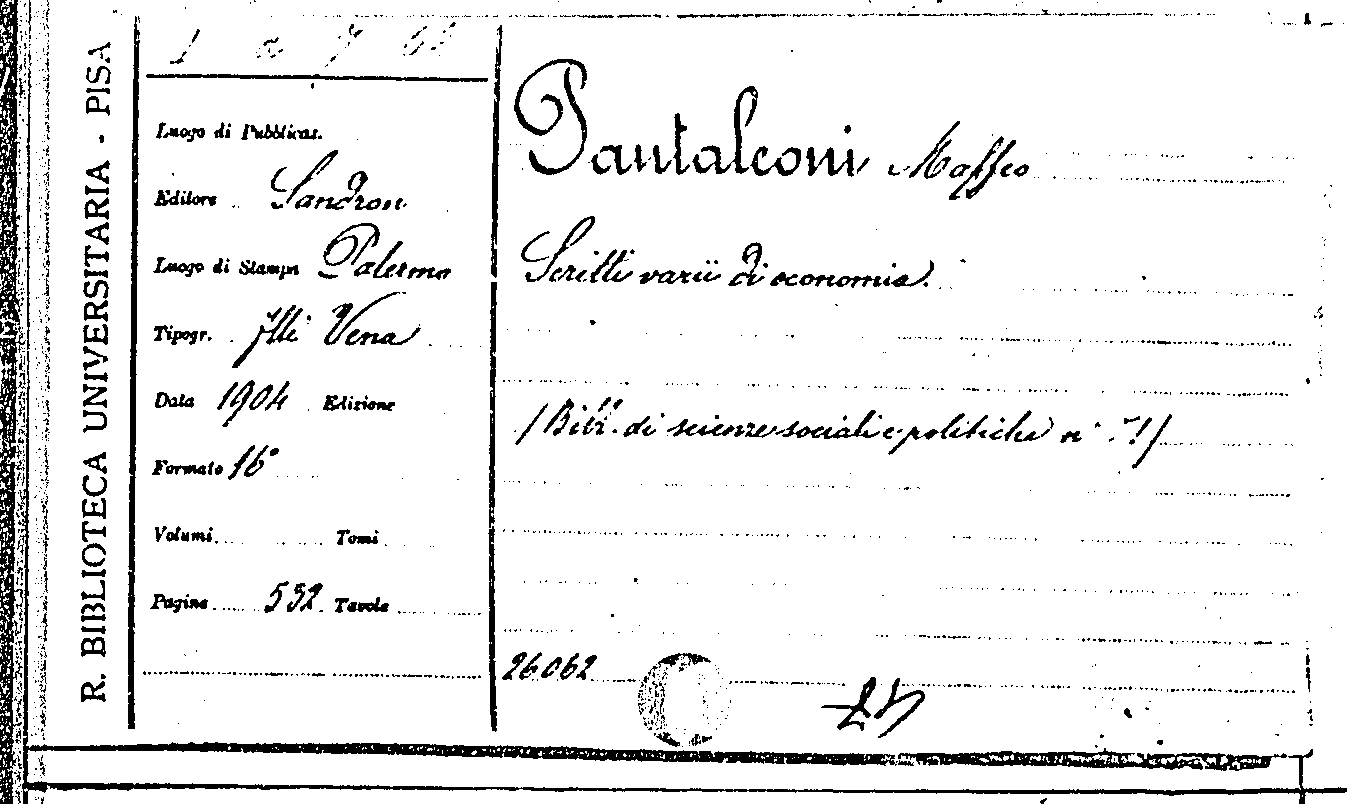 R. BIBLIOTECA UNIVERSITARIA - PISA
1 a 7 61
Luogo di Pubblicaz.
Editore Sandron
Luogo di Stampa Palermo
Tipogr. flli Vena
Data 1904 Edizione
Formato 16°
Volumi Tomi
Pagine 532 Tavole
Pantaleoni Maffeo
Scritti varii di economia.
/Bibl. di scienze sociali e politiche n°
26062